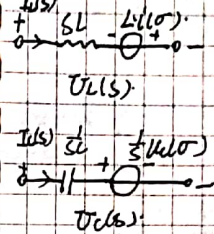 I_L(s) sL Li(0⁻)
+ - +
U_L(s).
I_c(s) 1/sC 1/s U_c(0⁻)
+ + -
U_c(s).